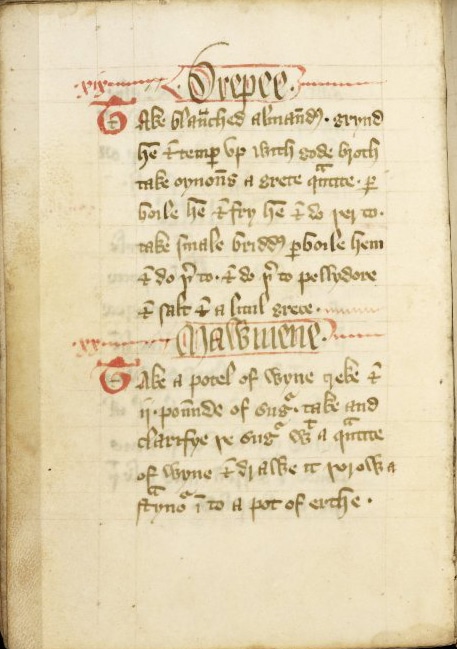 .xix. Drepee.
Take blañched almañdꝭ. grynd
hē ⁊ temꝑ vp with gode broth
take oynoñs a grete qᵃntite. ꝑ
boile hē ⁊ fry hē ⁊ do þer to.
take smale briddꝭ ꝑboile hem
⁊ do þʳ to. ⁊ do þʳ to pellydore
⁊ salt ⁊ a litul grece.
.xx. Mawmene.
Take a potel of wyne greke ⁊
ii. poūnde of sugʳ. take and
clarifye þe sugʳ wᵗ a qᵃntite
of wyne ⁊ drawe it þorow a
stᵃynoʳ ī to a pot of erthe.